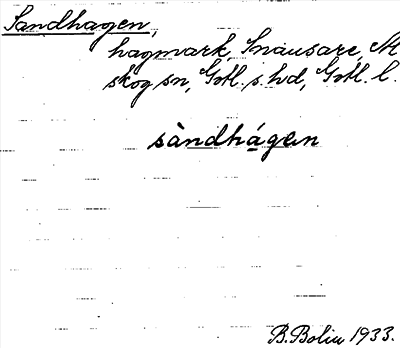 Sandhagen,
hagmark, Snausarve, Al
skog sn, Gotl. s. hd, Gotl. l.
sàndhágen
B. Bolin 1933.